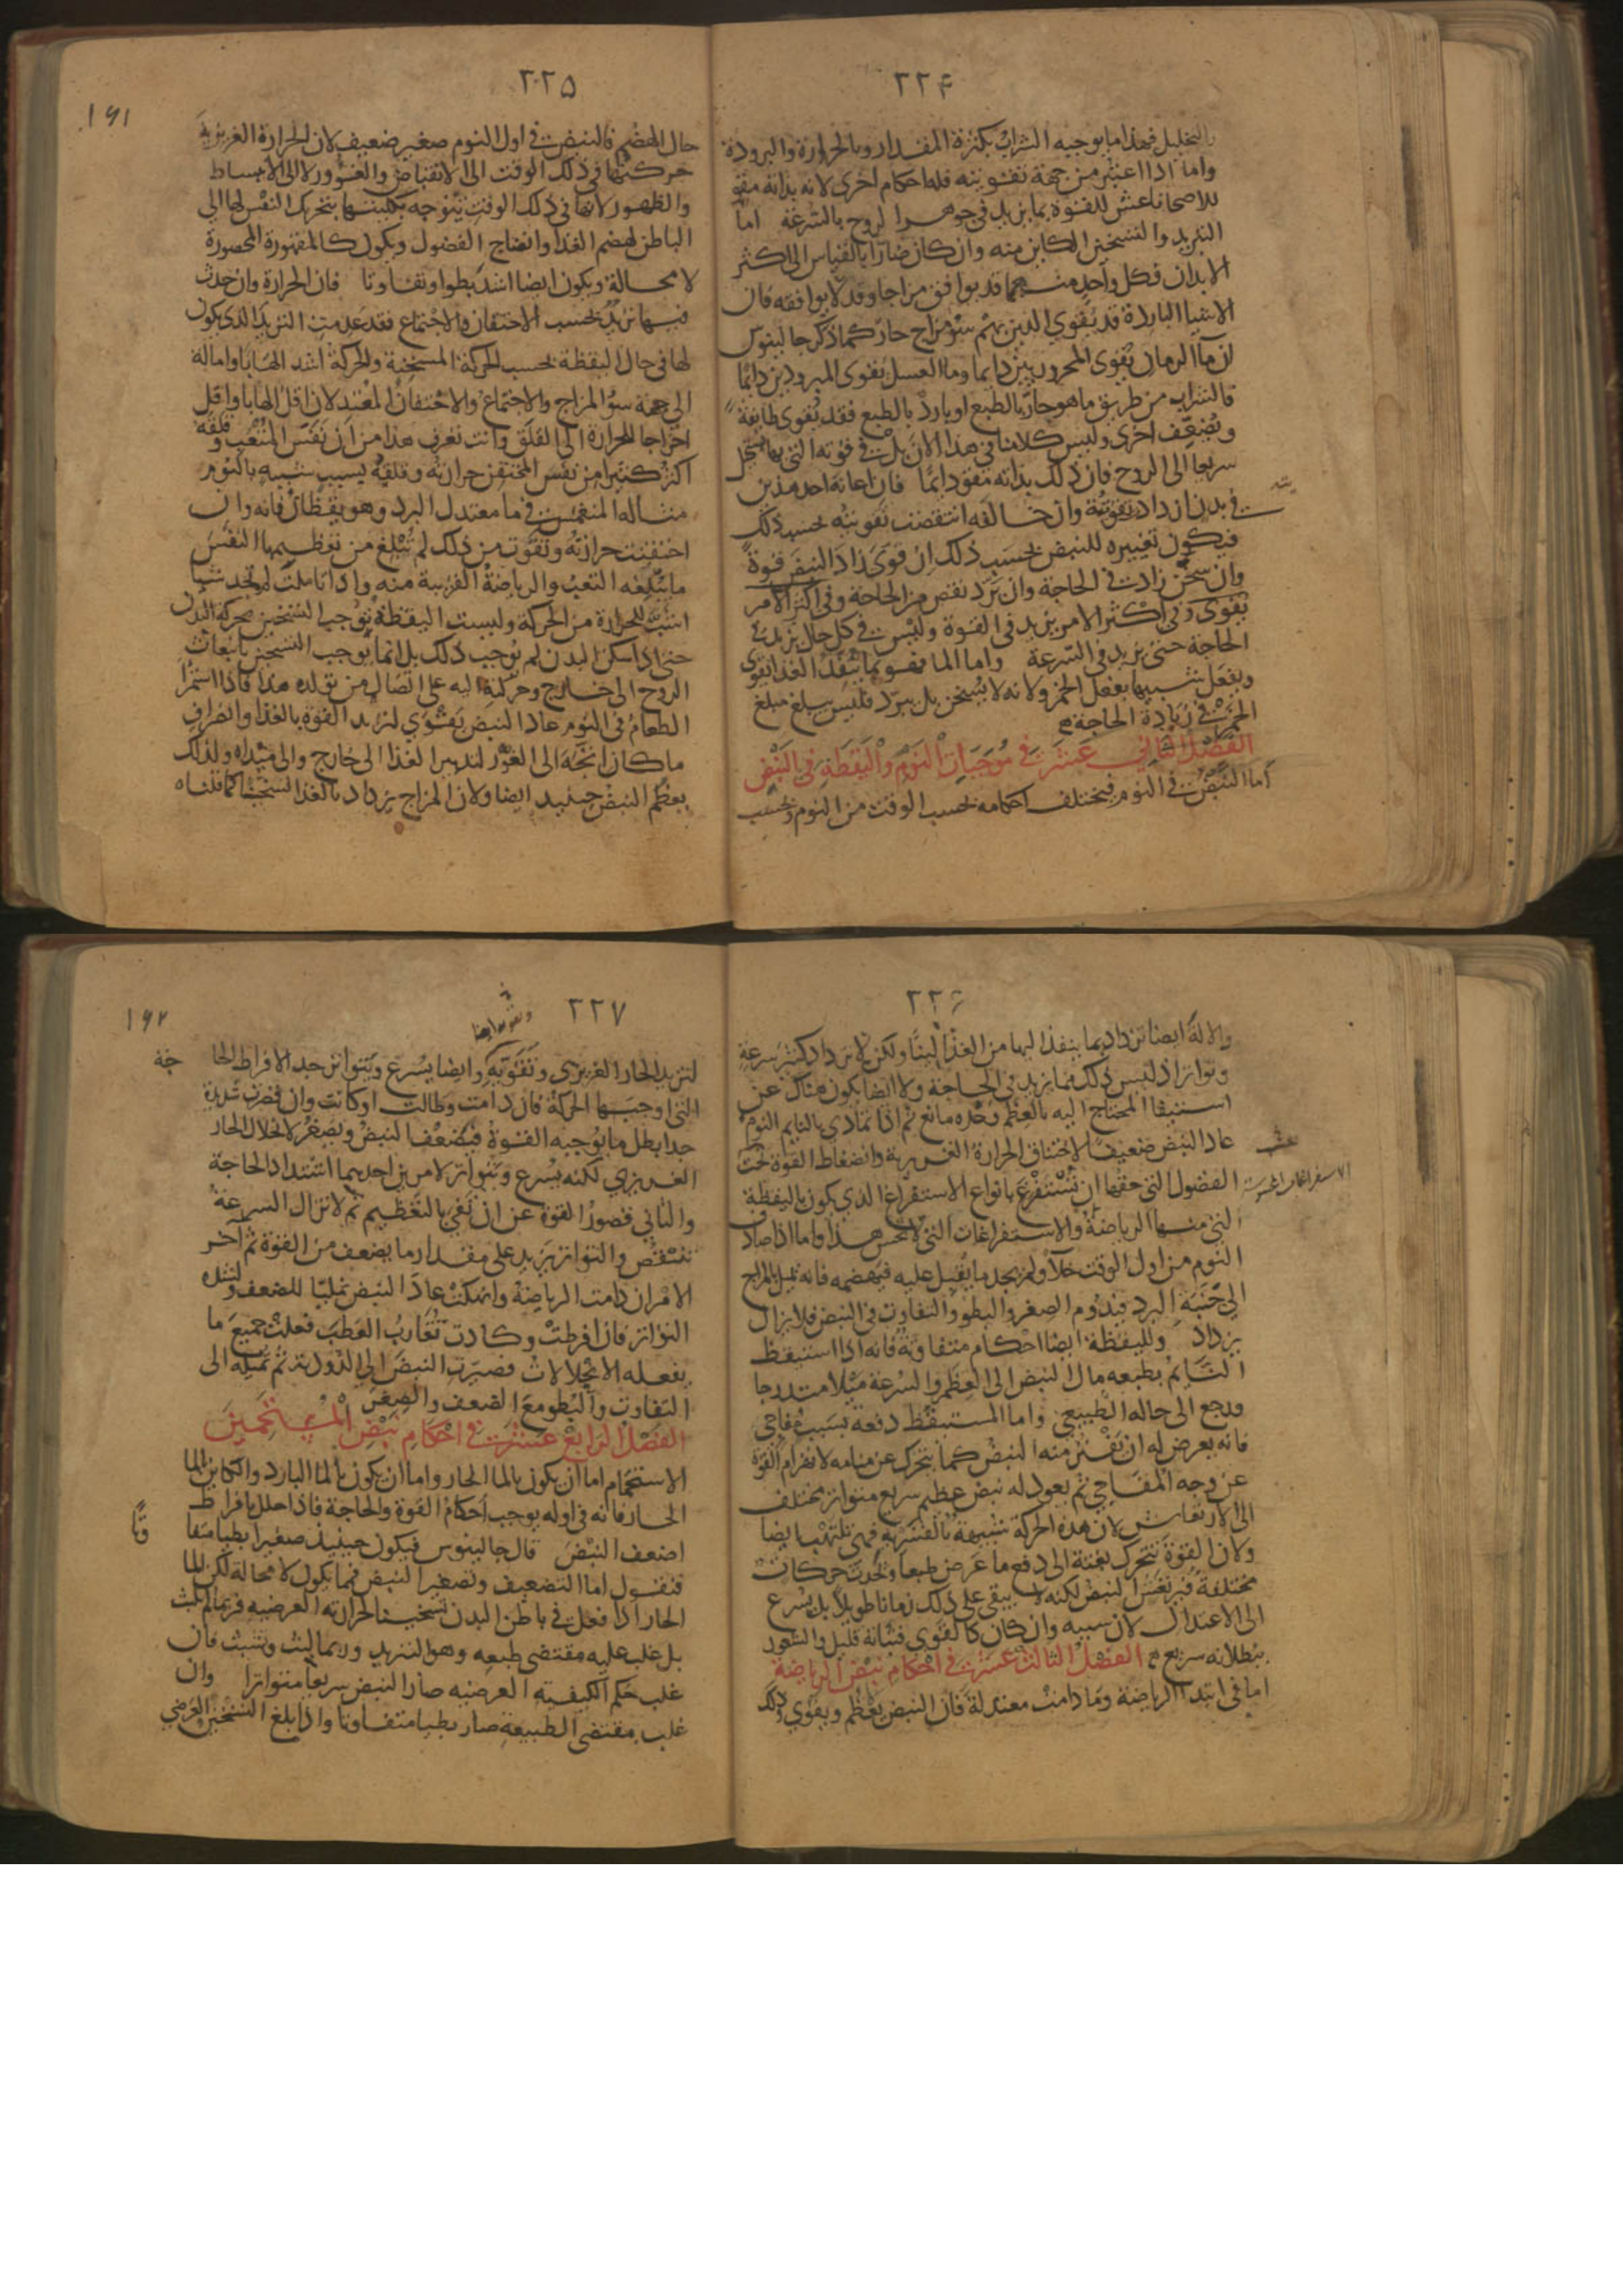 ٢٢٤
والتخليل فهذا ما يوجبه الشراب بكثرة المقدار وبالحرارة والبرودة
واما اذا اعتبر من جهة تقويته فله احكام اخرى لانه بذاته مقو
للاصحا ناعش للقوة بما يزيد في جوهر الروح بالسرعة اما
التبريد والتسخين الكاين منه وان كان ضارا بالقياس الى اكثر
الابدان فكل واحد منهما قد يوافق مزاجا وقد لا يوافقه فان
الاشيا الباردة قد يقوي الذين بهم سو مزاج حار كما ذكر جالينوس
ان ما الرمان يقوى المحرورين دايما وما العسل يقوى المبرودين دايما
فالشراب من طريق ما هو حار بالطبع او بارد بالطبع فقد يقوى طايفة
ويضعف اخرى وليس كلامنا في هذا الان بل في قوته التي بها يستحيل
سريعا الى الروح فان ذلك بذاته مقو دايما فان اعانه احد هذين
في بدن ازداد تقويته وان خالفه انتقصت تقويته بحسب ذلك
فيكون تغييره للنبض بحسب ذلك ان قوى زاد النبض قوة
وان سخن زاد في الحاجة وان برد نقص من الحاجة وفي اكثر الامر
يقوى وفي اكثر الامر يزيد في القوة وليس في كل حال يزيد في
الحاجة حتى يزيد في السرعة واما الما فهو بما ينفذ الغذا يقوى
ويفعل شبيها بفعل الخمر ولانه لا يسخن بل يبرد فليس يبلغ مبلغ
الخمر في زيادة الحاجة
الفصل الثاني عشر في موجبات النوم واليقظة في النبض
اما النبض في النوم فيختلف احكامه بحسب الوقت من النوم وبحسب
٢٢٥
١٦١
حال الهضم فالنبض في اول النوم صغير ضعيف لان الحرارة الغريزية
حركتها في ذلك الوقت الى الانقباض والغوور لا الى الانبساط
والظهور لانها في ذلك الوقت يتوجه بكليتها بتحريك النفس لها الى
الباطن لهضم الغذا وانضاج الفضول ويكون كالمقهورة المحصورة
لا محالة ويكون ايضا اشد بطوا وتفاوتا فان الحرارة وان حدث
فيها تزيد بحسب الاحتقان والاجتماع فقد عدمت التزيد الذي يكون
لها في حال اليقظة بحسب الحركة المسخنة والحركة اشد الهابا وامالة
الى جهة سو المزاج والاجتماع والاحتقان المعتدلان اقل الهابا واقل
اخراجا للحرارة الى القلق وانت تعرف هذا من ان نفس المتعب وقلقه
اكثر كثيرا من نفس المحتقن حرارته وقلقه بسبب شبيه بالنوم
مثاله المنغمس في ما معتدل البرد وهو يقظان فانه وان
احتقنت حرارته وتقوت من ذلك لم تبلغ من تعظيمها النفس
ما يبلغه التعب والرياضة القريبة منه واذا تاملت لم تجد شيا
اشب للحرارة من الحركة وليست اليقظة توجب التسخين بحركة البدن
حتى اذا سكن البدن لم يوجب ذلك بل انما يوجب التسخين بانبعاث
الروح الى خارج وحركته اليه على اتصال من تولده هذا فاذا استمرا
الطعام في النوم عاد النبض يقوي لتزيد القوة بالغذا وانصراف
ما كان اتجه الى الغور لتدبير الغذا الى خارج والى مبداه ولذلك
يعظم النبض حينيذ ايضا ولان المزاج يزداد بالغذا تسخنا كما قلناه
٢٢٦
والالة ايضا تزداد بما ينفذ اليها من الغذا لينا ولكن لا تزداد كثير سرعة
وتواتر اذ ليس ذلك مما يزيد في الحاجة ولا ايضا يكون هناك عن
استيفا المحتاج اليه بالعظم وحده مانع ثم اذا تمادى بالنايم النوم
عاد النبض ضعيفا لاختناق الحرارة الغريزية وانضغاط القوة تحت
الفضول التي حقها ان تستفرغ بانواع الاستفراغ الذي يكون باليقظة
التي منها الرياضة والاستفراغات التي لا تحس هذا واما اذا صادف
النوم من اول الوقت خلا ولم يجد ما يقبل عليه فيهضمه فانه يميل بالمزاج
الى جنبة البرد فيدوم الصغر والبطو والتفاوت في النبض فلا يزال
يزداد ولليقظة ايضا احكام متفاوتة فانه اذا استيقظ
النايم بطبعه مال النبض الى العظم والسرعة ميلا متدرجا
ورجع الى حاله الطبيعي واما المستيقظ دفعة بسبب مفاجي
فانه يعرض له ان يفتر منه النبض كما يتحرك عن منامه لانهزام القوة
عن وجه المفاجي ثم يعود له نبض عظيم سريع متواتر مختلف
الى الارتعاش لان هذه الحركة شبيهة بالقسرية فهي تلتهب ايضا
ولان القوة تتحرك بغتة الى دفع ما عرض طبعا وتحدث حركات
مختلفة فيرتعش النبض لكنه لا يبقى على ذلك زمانا طويلا بل يسرع
الى الاعتدال لان سببه وان كان كالقوي فثباته قليل والشعور
ببطلانه سريع الفصل الثالث عشر في احكام نبض الرياضة
اما في ابتدا الرياضة وما دامت معتدلة فان النبض يعظم ويقوى وذلك
٢٢٧
١٦٢
لتزيد الحار الغريزي وتقويه وايضا يسرع ويتواتر جدا لافراط الحا
جة
التي اوجبتها الحركة فان دامت وطالت او كانت وان قصرت شديدة
جدا بطل ما يوجبه القوة فيضعف النبض ويصغر لانحلال الحار
الغريزي لكنه يسرع ويتواتر لامرين احدهما اشتداد الحاجة
والثاني قصور القوة عن ان تفي بالتعظيم ثم لا تزال السرعة
تنتقص والتواتر يزيد على مقدار ما يضعف من القوة ثم آخر
الامر ان دامت الرياضة وانهكت عاد النبض نمليا للضعف ولشدة
التواتر فان افرطت وكادت تقارب العطب فعلت جميع ما
يفعله الانحلالات فصيرت النبض الى الدودية ثم تميله الى
التفاوت والبطو مع الضعف والصغر
الفصل الرابع عشر في احكام نبض المستحمين
الاستحمام اما ان يكون بالما الحار واما ان يكون بالما البارد والكاين بالما
الحار فانه في اوله يوجب احكام القوة والحاجة فاذا حلل بافراط
اضعف النبض قال جالينوس فيكون حينيذ صغيرا بطيا متفا
وتا
فنقول اما التضعيف وتصغير النبض فما يكون لا محالة لكن الما
الحار اذا فعل في باطن البدن تسخينا لحرارته العرضية فربما لم يلبث
بل غلب عليه مقتضى طبعه وهو التبريد وربما لبث وتشبث فان
غلب حكم الكيفية العرضية صار النبض سريعا متواترا وان
غلب مقتضى الطبيعة صار بطيا متفاوتا واذا بلغ التسخين العرضي